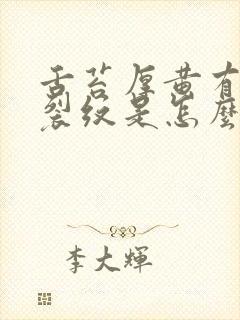 舌苔厚黄有
裂纹是怎麼
李大輝